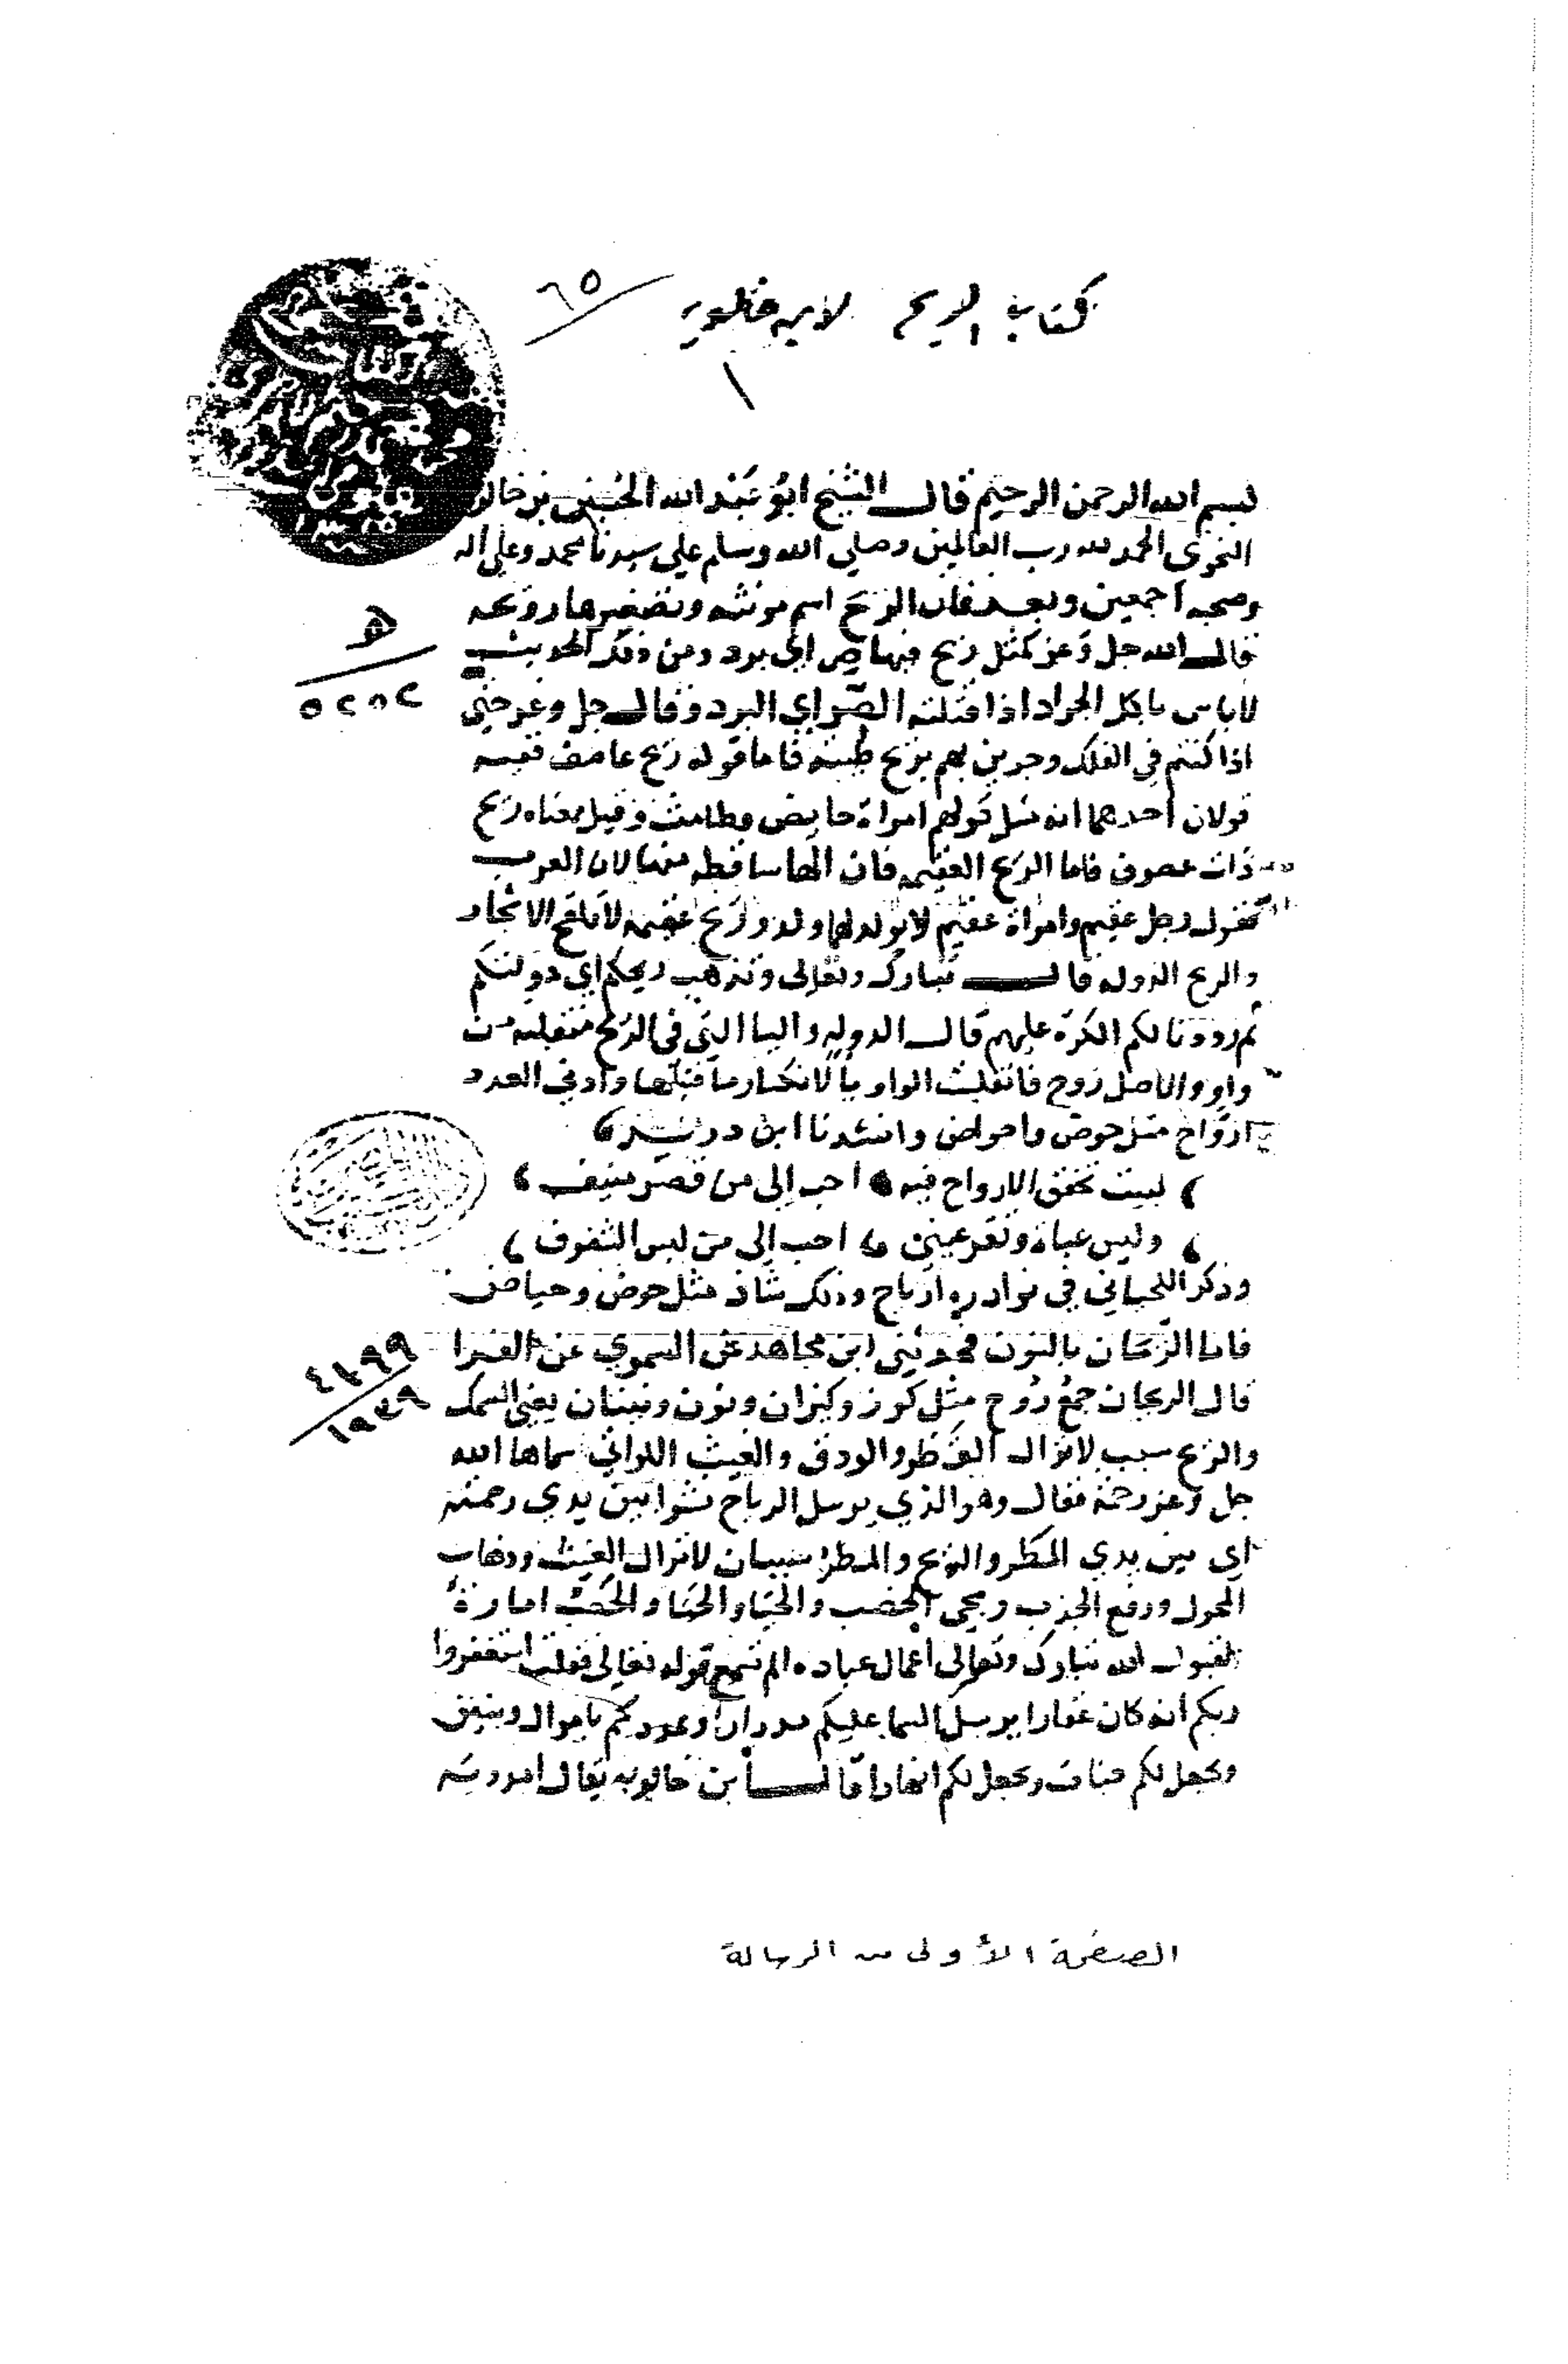 كتاب الريح لابن خالويه
٦٥
١
بسم الله الرحمن الرحيم قال الشيخ ابو عبد الله الحسين بن خالويه
النحوى الحمد لله رب العالمين وصلى الله وسلم على سيدنا محمد وعلى اله
وصحبه اجمعين وبعد فان الريح اسم مونثه وتصغيرها رويحه
قال الله جل وعز كمثل ريح فيها صر اي برد ومن ذلك الحديث
لاباس باكل الجراد اذا قتلته الصر اي البرد وقال جل وعز حتى
اذا كنتم في الفلك وجرين بهم بريح طيبة فاما قوله ريح عاصف ففيه
قولان احدهما انه مثل قولهم امراة حايض وطامث وقيل معناه ريح
ذات عصوف فاما الريح العقيم فان الها ساقطه منها لان العرب
تقول رجل عقيم وامراة عقيم لا يولد لهما ولد وريح عقيم لا تلقح الاشجار
والريح الدوله قال تبارك وتعالى وتذهب ريحكم اي دولتكم
ثم رددنا لكم الكرة عليهم قال الدوله والياا التي في الريح منقلبه من
واو والاصل روح فانقلبت الواو يا لانكسار ما قبلها وادنى العدد
ارواح مثل حوض واحواض وانشدنا ابن دريد
لبيت تخفق الارواح فيه احب الي من قصر منيف
ولبس عباة وتقر عيني احب الي من لبس الشفوف
وذكر اللحياني في نوادره ارياح وذلك شاذ مثل حوض وحياض
فاما الريحان بالنون فحدثني ابن مجاهد عن السمري عن الفرا
قال الريحان جمع روح مثل كوز وكيزان ونون ونينان يعني السمك
والريح سبب لانزال القطر والودق والغيث اللواتي سماها الله
جل وعز رحمة فقال وهو الذي يرسل الرياح نشرا بين يدي رحمته
اي بين يدي المطر والريح والمطر سببان لانزال الغيث وذهاب
المحول ورفع الجدب ومجي الخصب والحيا والحيا امارة
لقبول الله تبارك وتعالى اعمال عباده الم تسمع قوله تعالى فقلت استغفروا
ربكم انه كان غفارا يرسل السما عليكم مدرارا ويمددكم باموال وبنين
ويجعل لكم جنات ويجعل لكم انهارا قال ابن خالويه يقال
ه
٥٢٥٢
١٩٣٩
الصفحة الأولى من الرسالة